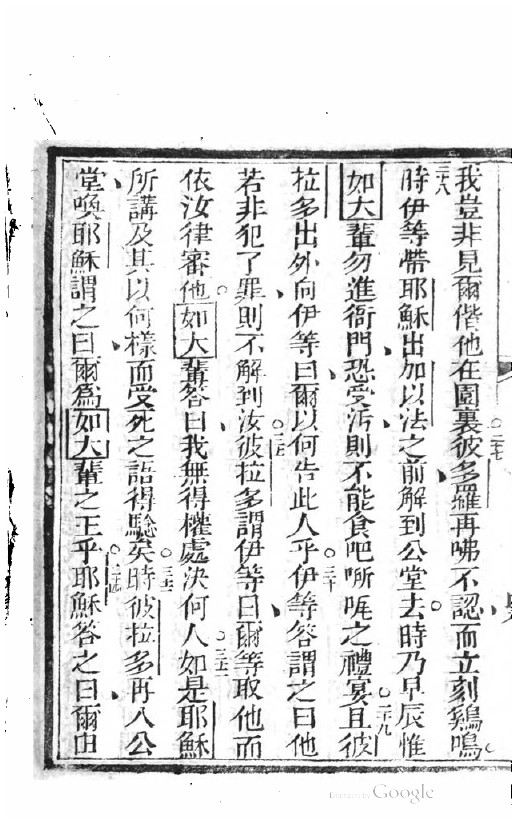 我豈非見爾偕他在園裏彼多羅再咈不認而立刻鷄鳴
時伊等帶耶穌出加以法之前解到公堂去時乃早辰惟
如大輩勿進衙門恐受污則不能食吧𠸄㖿之禮宴且彼
拉多出外向伊等曰爾以何告此人乎伊等答謂之曰他
若非犯了罪則不解到汝彼拉多謂伊等曰爾等取他而
依汝律審他如大輩答曰我無得權處決何人如是耶穌
所講及其以何樣而受死之語得驗矣時彼拉多再入公
堂喚耶穌謂之曰爾為如大輩之王乎耶穌答之曰爾由
Digitized by Google